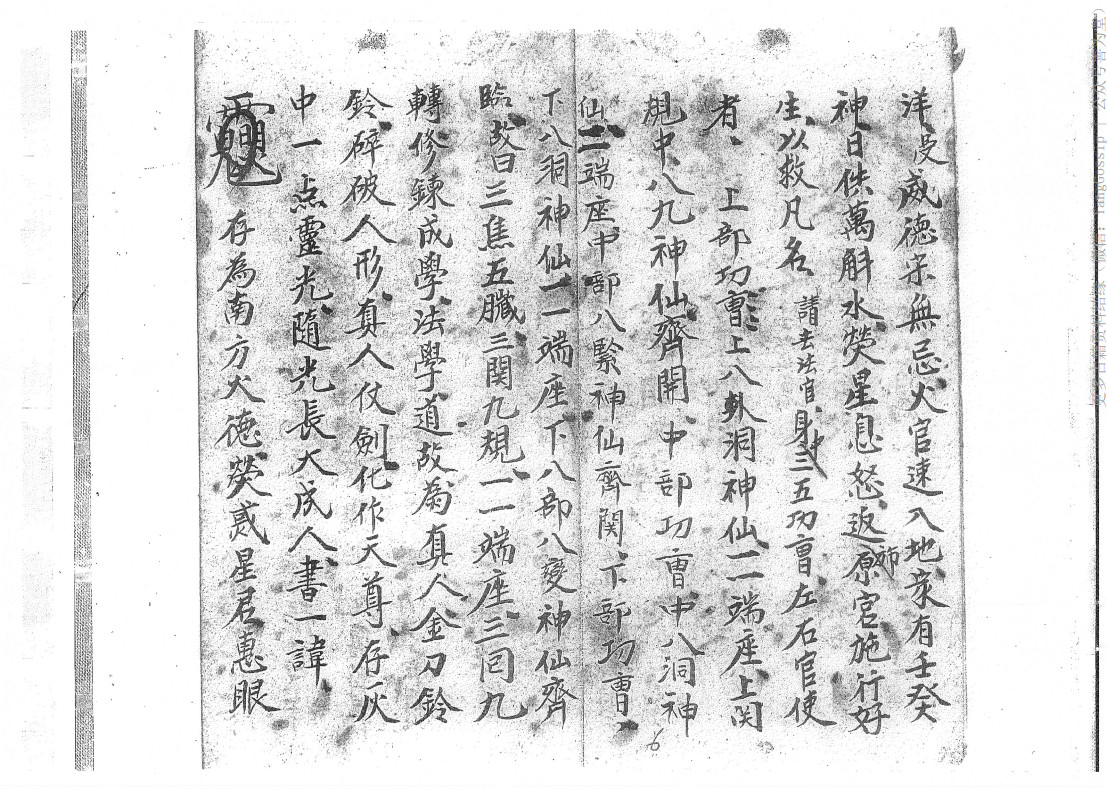 洋受威德宗無忌火官速入地衆有壬癸
神日供萬斛水熒星息怒返原宮施行好
生以救凡名 請去法官身中三五功曹左右官使
者 上部功曹上八軌洞神仙一一端座上関
規中八九神仙齊開中部功曹中八洞神
仙一一端座中部八緊神仙齊関下部功曹
下八洞神仙一一端座下八部八變神仙齊
臨故曰三焦五臟三関九規一一端座三囘九
轉修鍊成學法學道故為真人金刀鈴
鈴碎破人形真人仗劍化作天尊存灰
中一点靈光隨光長大成人書一諱
存為南方火德熒惑星君惠眼
6